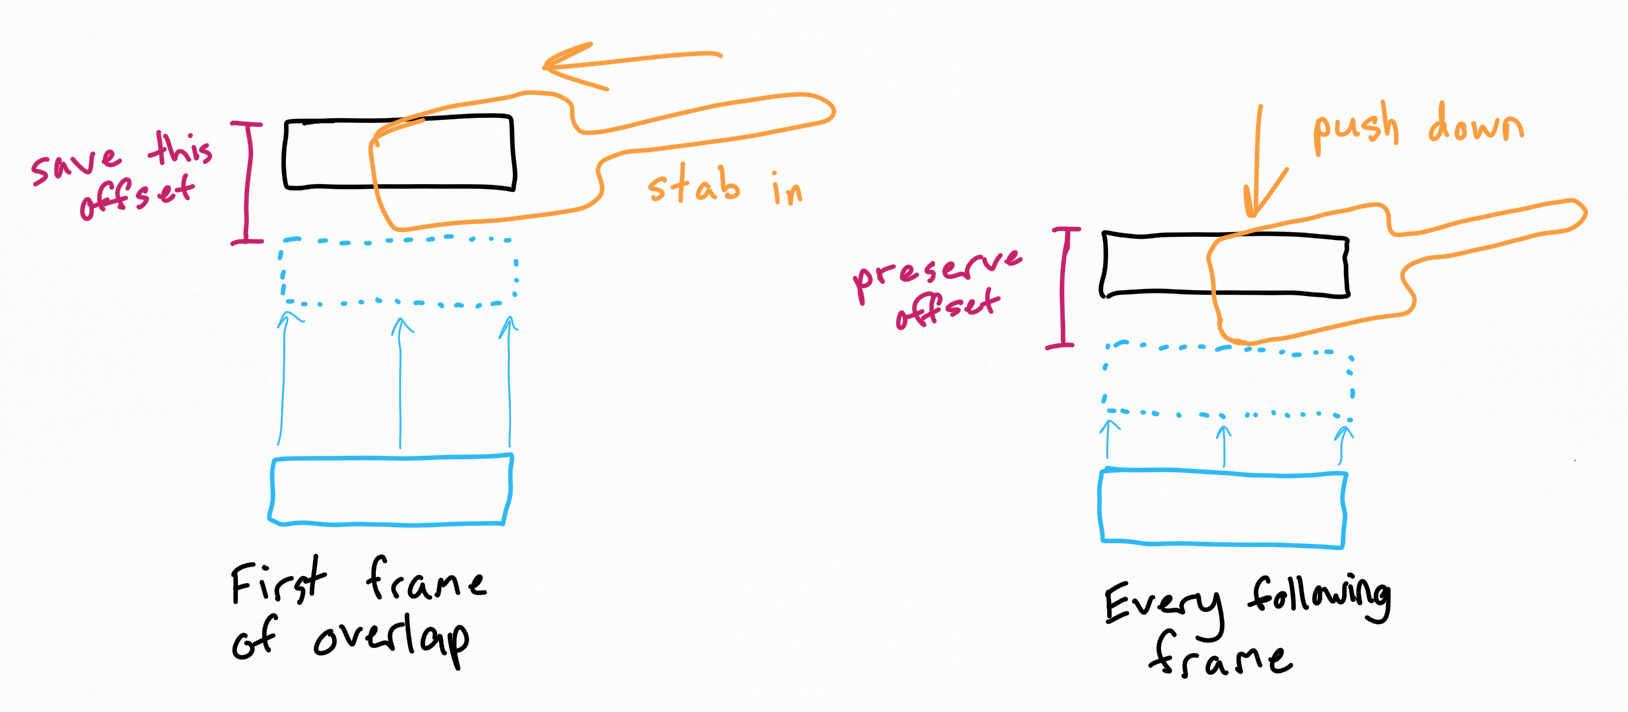 save this
offset
stab in
First frame
of overlap
push down
preserve
offset
Every following
frame